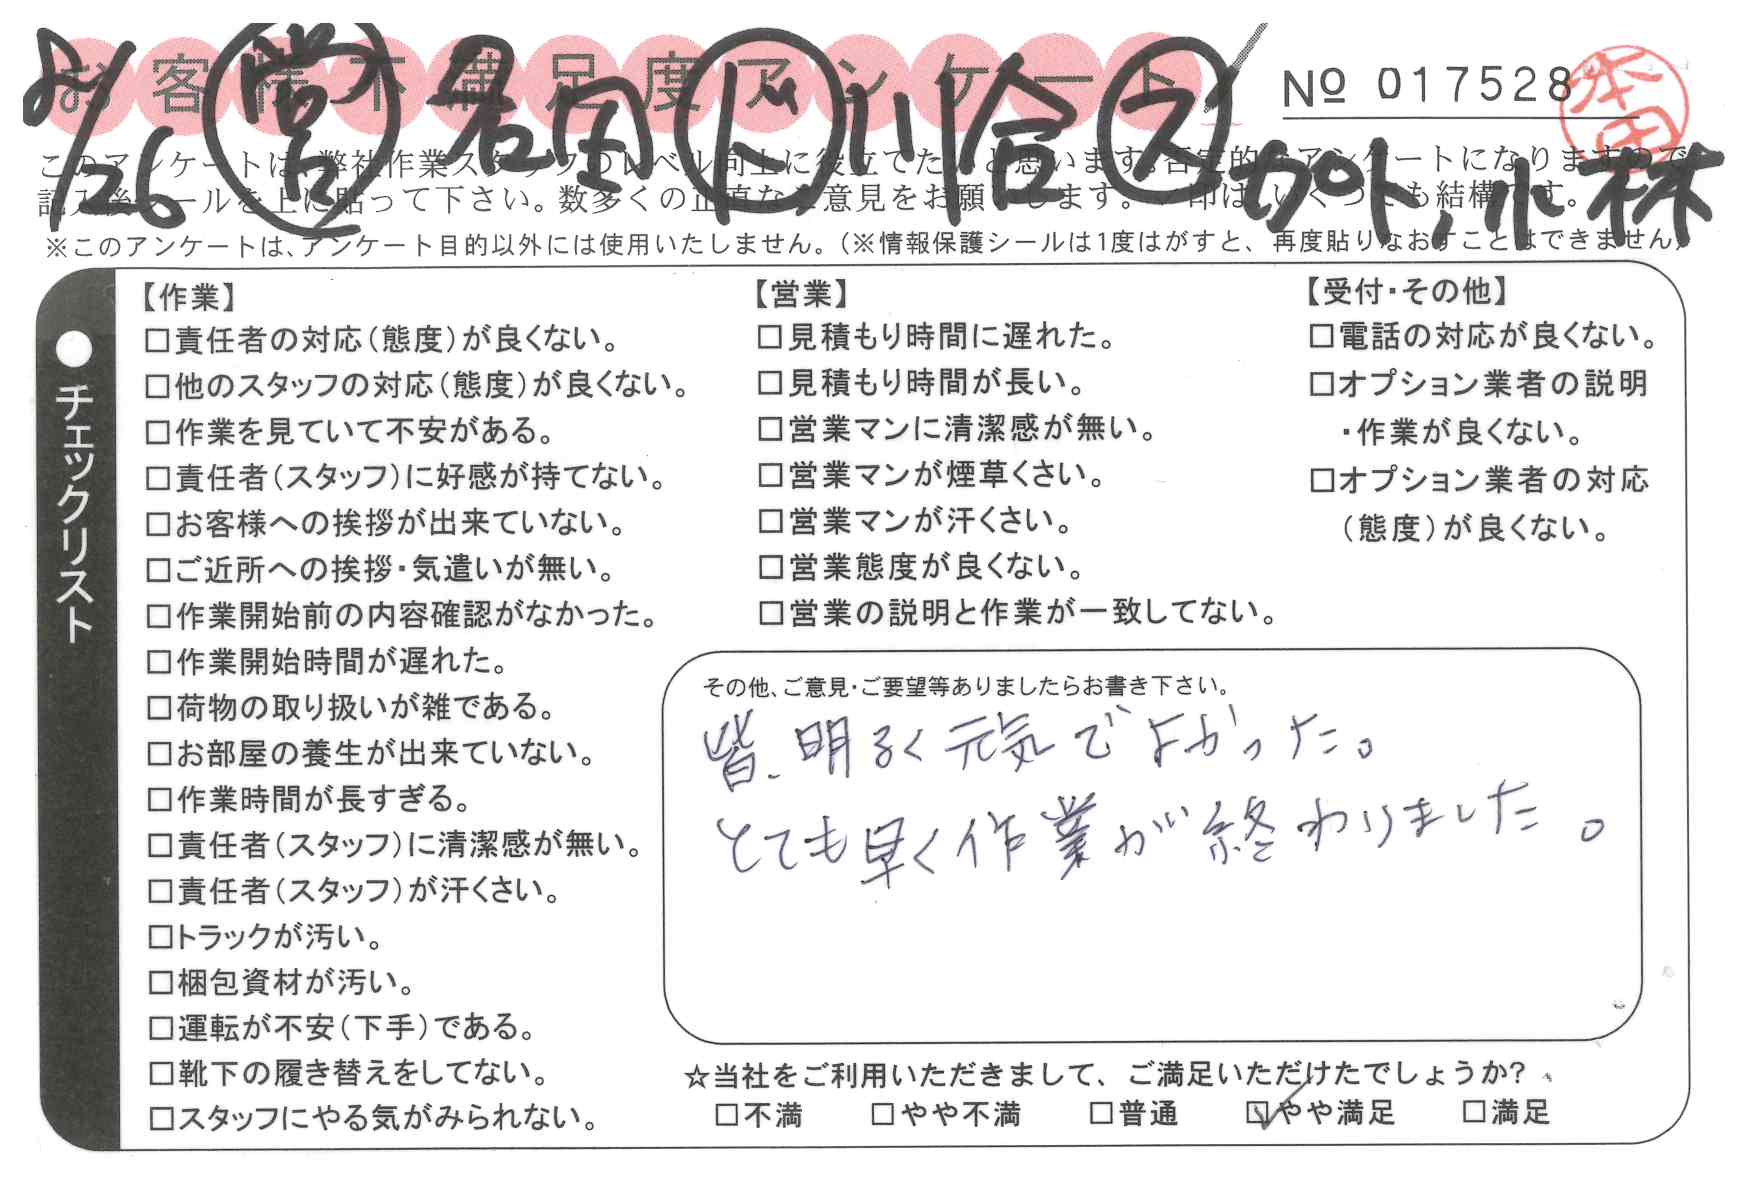 お客様不満足度アンケート
No 017528
本田
/26 営 岩田 ド 川合 ス 加ト,小林
このアンケートは、弊社作業スタッフのレベル向上に役立てたいと思います。否定的なアンケートになりますので
記入後シールを上に貼って下さい。数多くの正直なご意見をお願いします。✓印は、いくつでも結構です。
※このアンケートは、アンケート目的以外には使用いたしません。(※情報保護シールは1度はがすと、再度貼りなおすことはできません)
●チェックリスト
【作業】
□責任者の対応(態度)が良くない。
□他のスタッフの対応(態度)が良くない。
□作業を見ていて不安がある。
□責任者(スタッフ)に好感が持てない。
□お客様への挨拶が出来ていない。
□ご近所への挨拶・気遣いが無い。
□作業開始前の内容確認がなかった。
□作業開始時間が遅れた。
□荷物の取り扱いが雑である。
□お部屋の養生が出来ていない。
□作業時間が長すぎる。
□責任者(スタッフ)に清潔感が無い。
□責任者(スタッフ)が汗くさい。
□トラックが汚い。
□梱包資材が汚い。
□運転が不安(下手)である。
□靴下の履き替えをしてない。
□スタッフにやる気がみられない。
【営業】
□見積もり時間に遅れた。
□見積もり時間が長い。
□営業マンに清潔感が無い。
□営業マンが煙草くさい。
□営業マンが汗くさい。
□営業態度が良くない。
□営業の説明と作業が一致してない。
【受付・その他】
□電話の対応が良くない。
□オプション業者の説明
・作業が良くない。
□オプション業者の対応
(態度)が良くない。
その他、ご意見・ご要望等ありましたらお書き下さい。
皆、明るく元気でよかった。
とても早く作業が終わりました。
☆当社をご利用いただきまして、ご満足いただけたでしょうか?
□不満 □やや不満 □普通 ☑やや満足 □満足